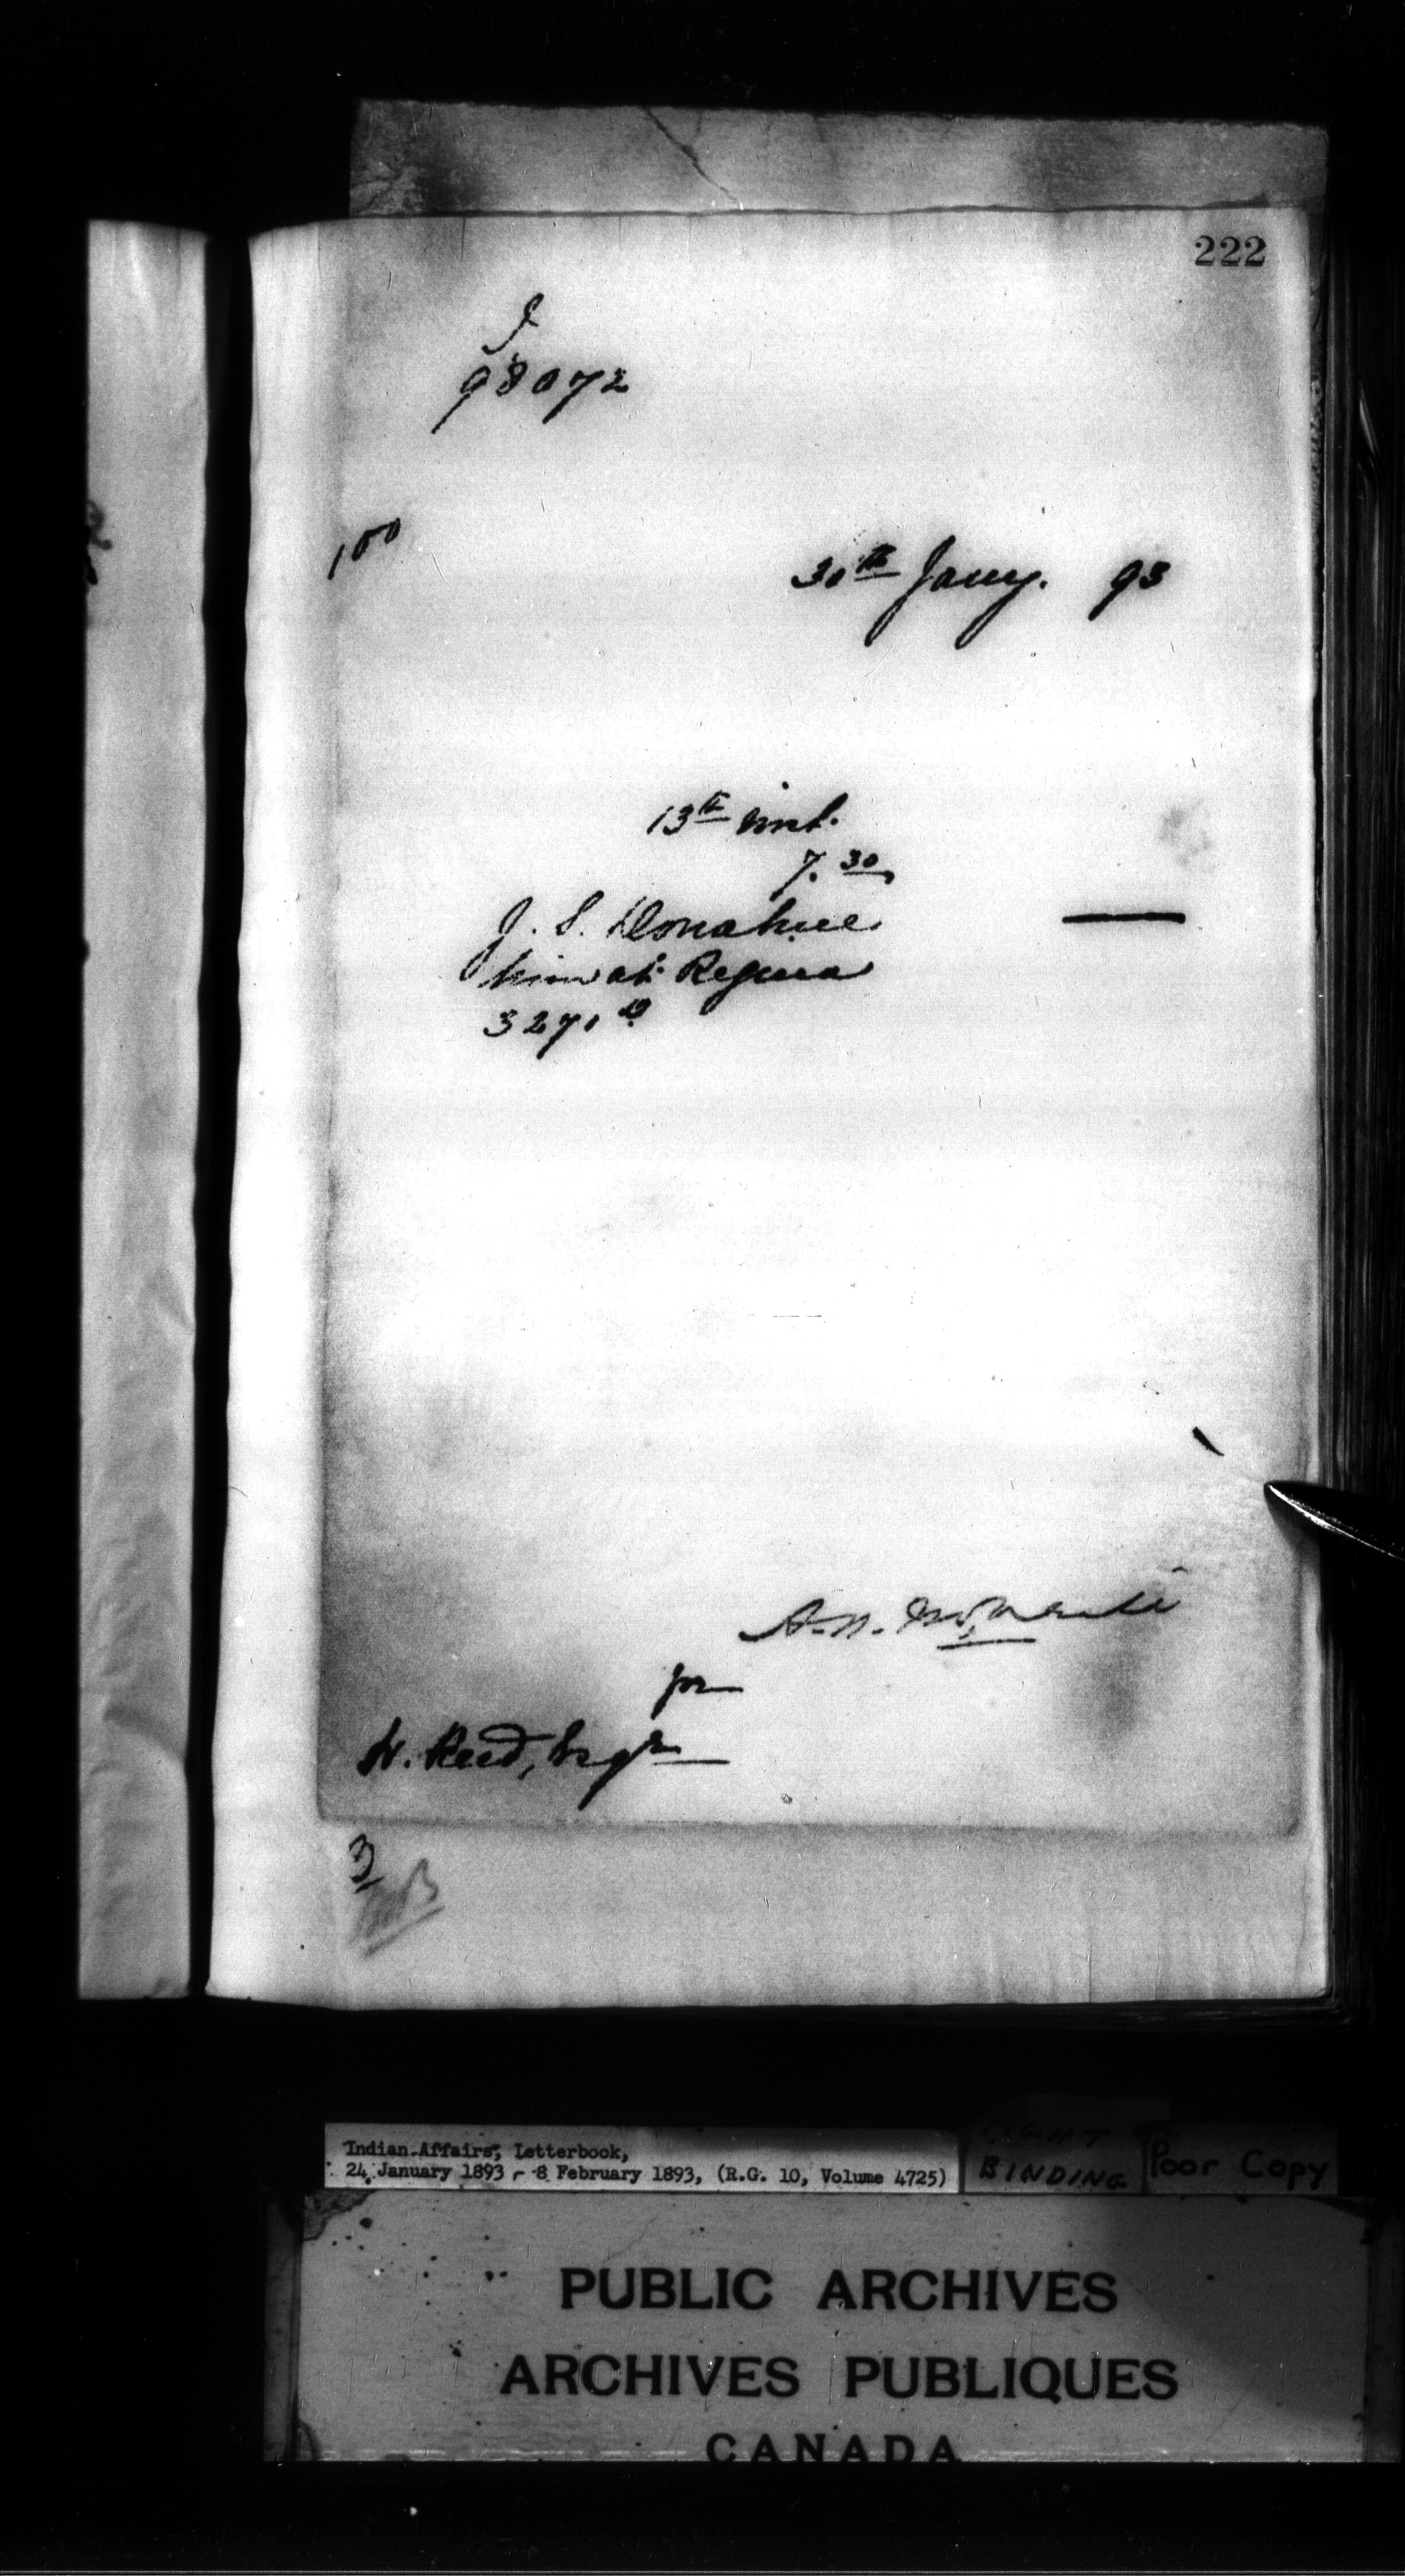 222
J
98072
100
30th Jany. 93
13th inst.
7.30
J. S. Donahue
him at Regina
3271
A. N. McNeill
for
H. Reed, Esqre
3
Indian Affairs, Letterbook,
24 January 1893 - 8 February 1893, (R.G. 10, Volume 4725)
BINDING
Poor Copy
PUBLIC ARCHIVES
ARCHIVES PUBLIQUES
CANADA